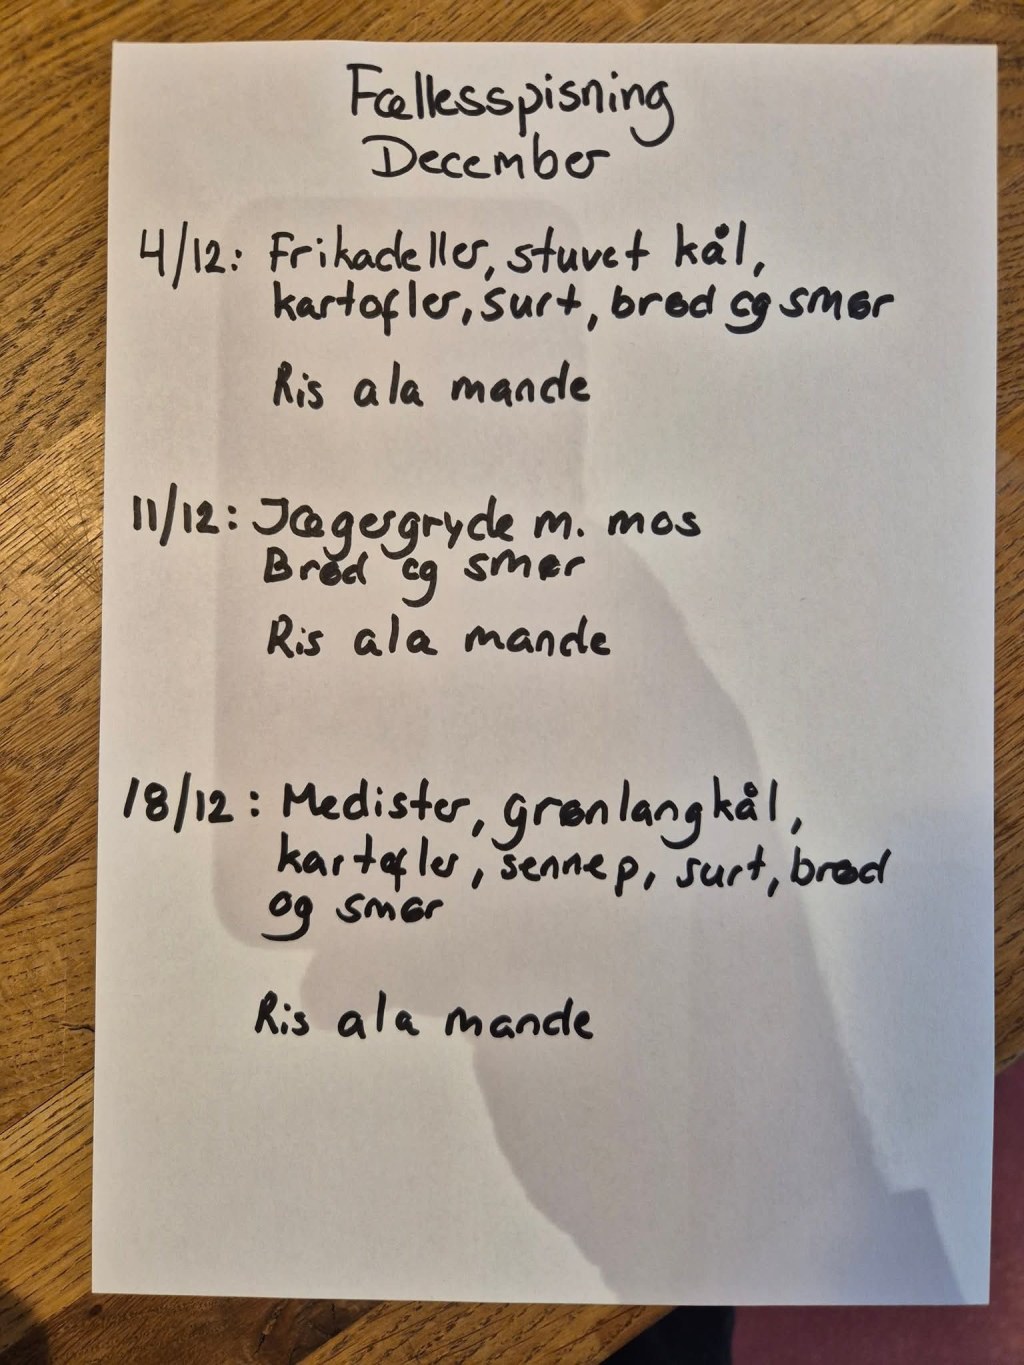 Fællesspisning
December
4/12: Frikadeller, stuvet kål,
kartofler, surt, brød og smør
Ris ala mande
11/12: Jægergryde m. mos
Brød og smør
Ris ala mande
18/12: Medister, grønlangkål,
kartofler, sennep, surt, brød
og smør
Ris ala mande